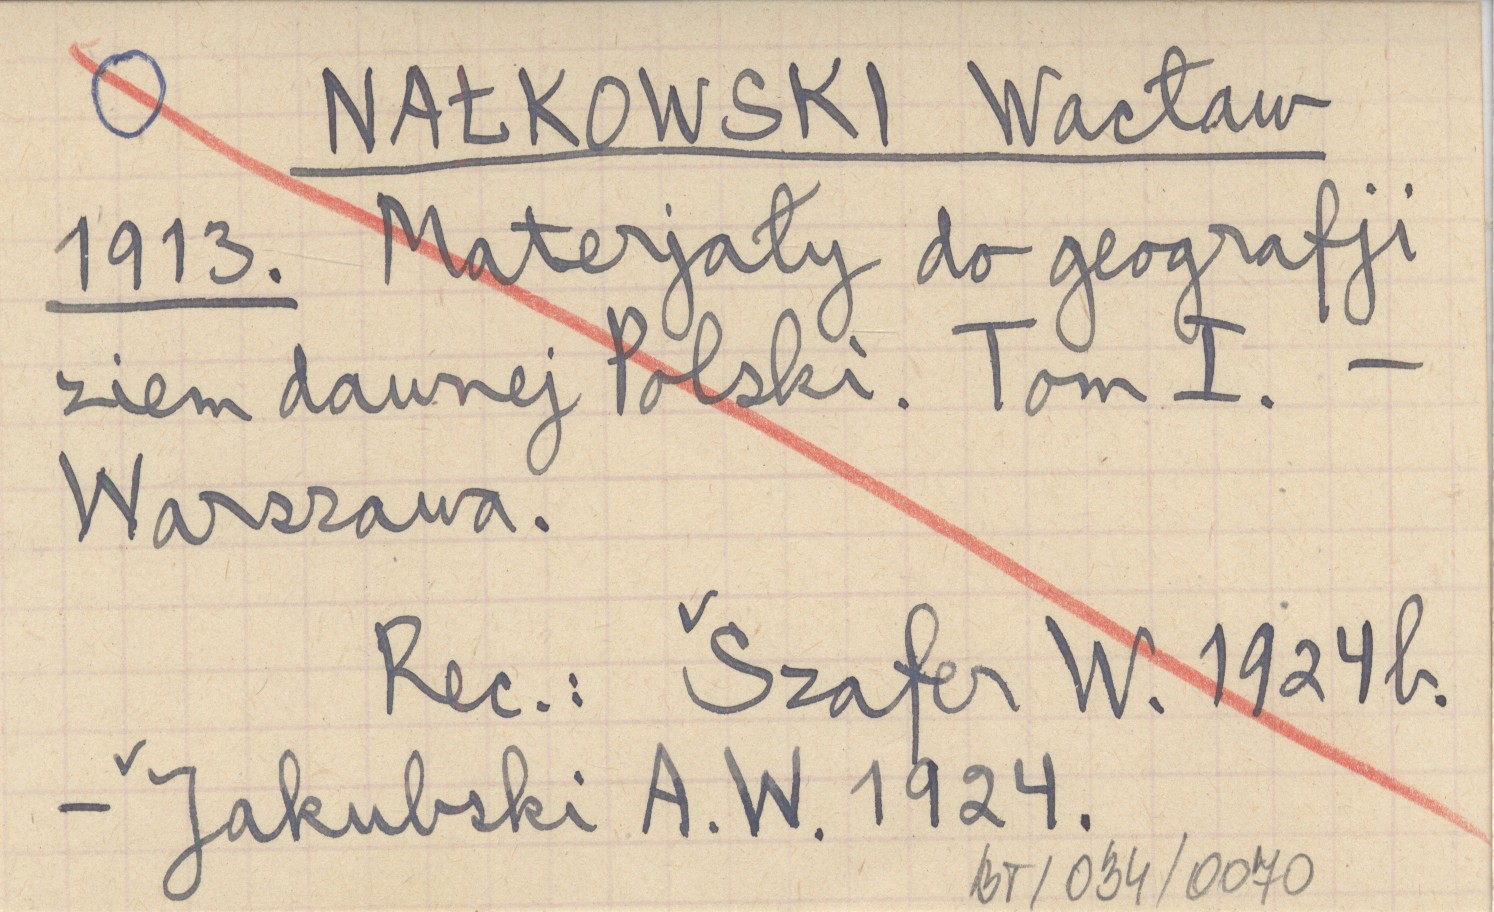 NAŁKOWSKI Wacław
1913. Materjały do geografji
ziem dawnej Polski. Tom I. –
Warszawa.
Rec.: Szafer W. 1924b.
– Jakubski A.W. 1924.
BT/034/0070